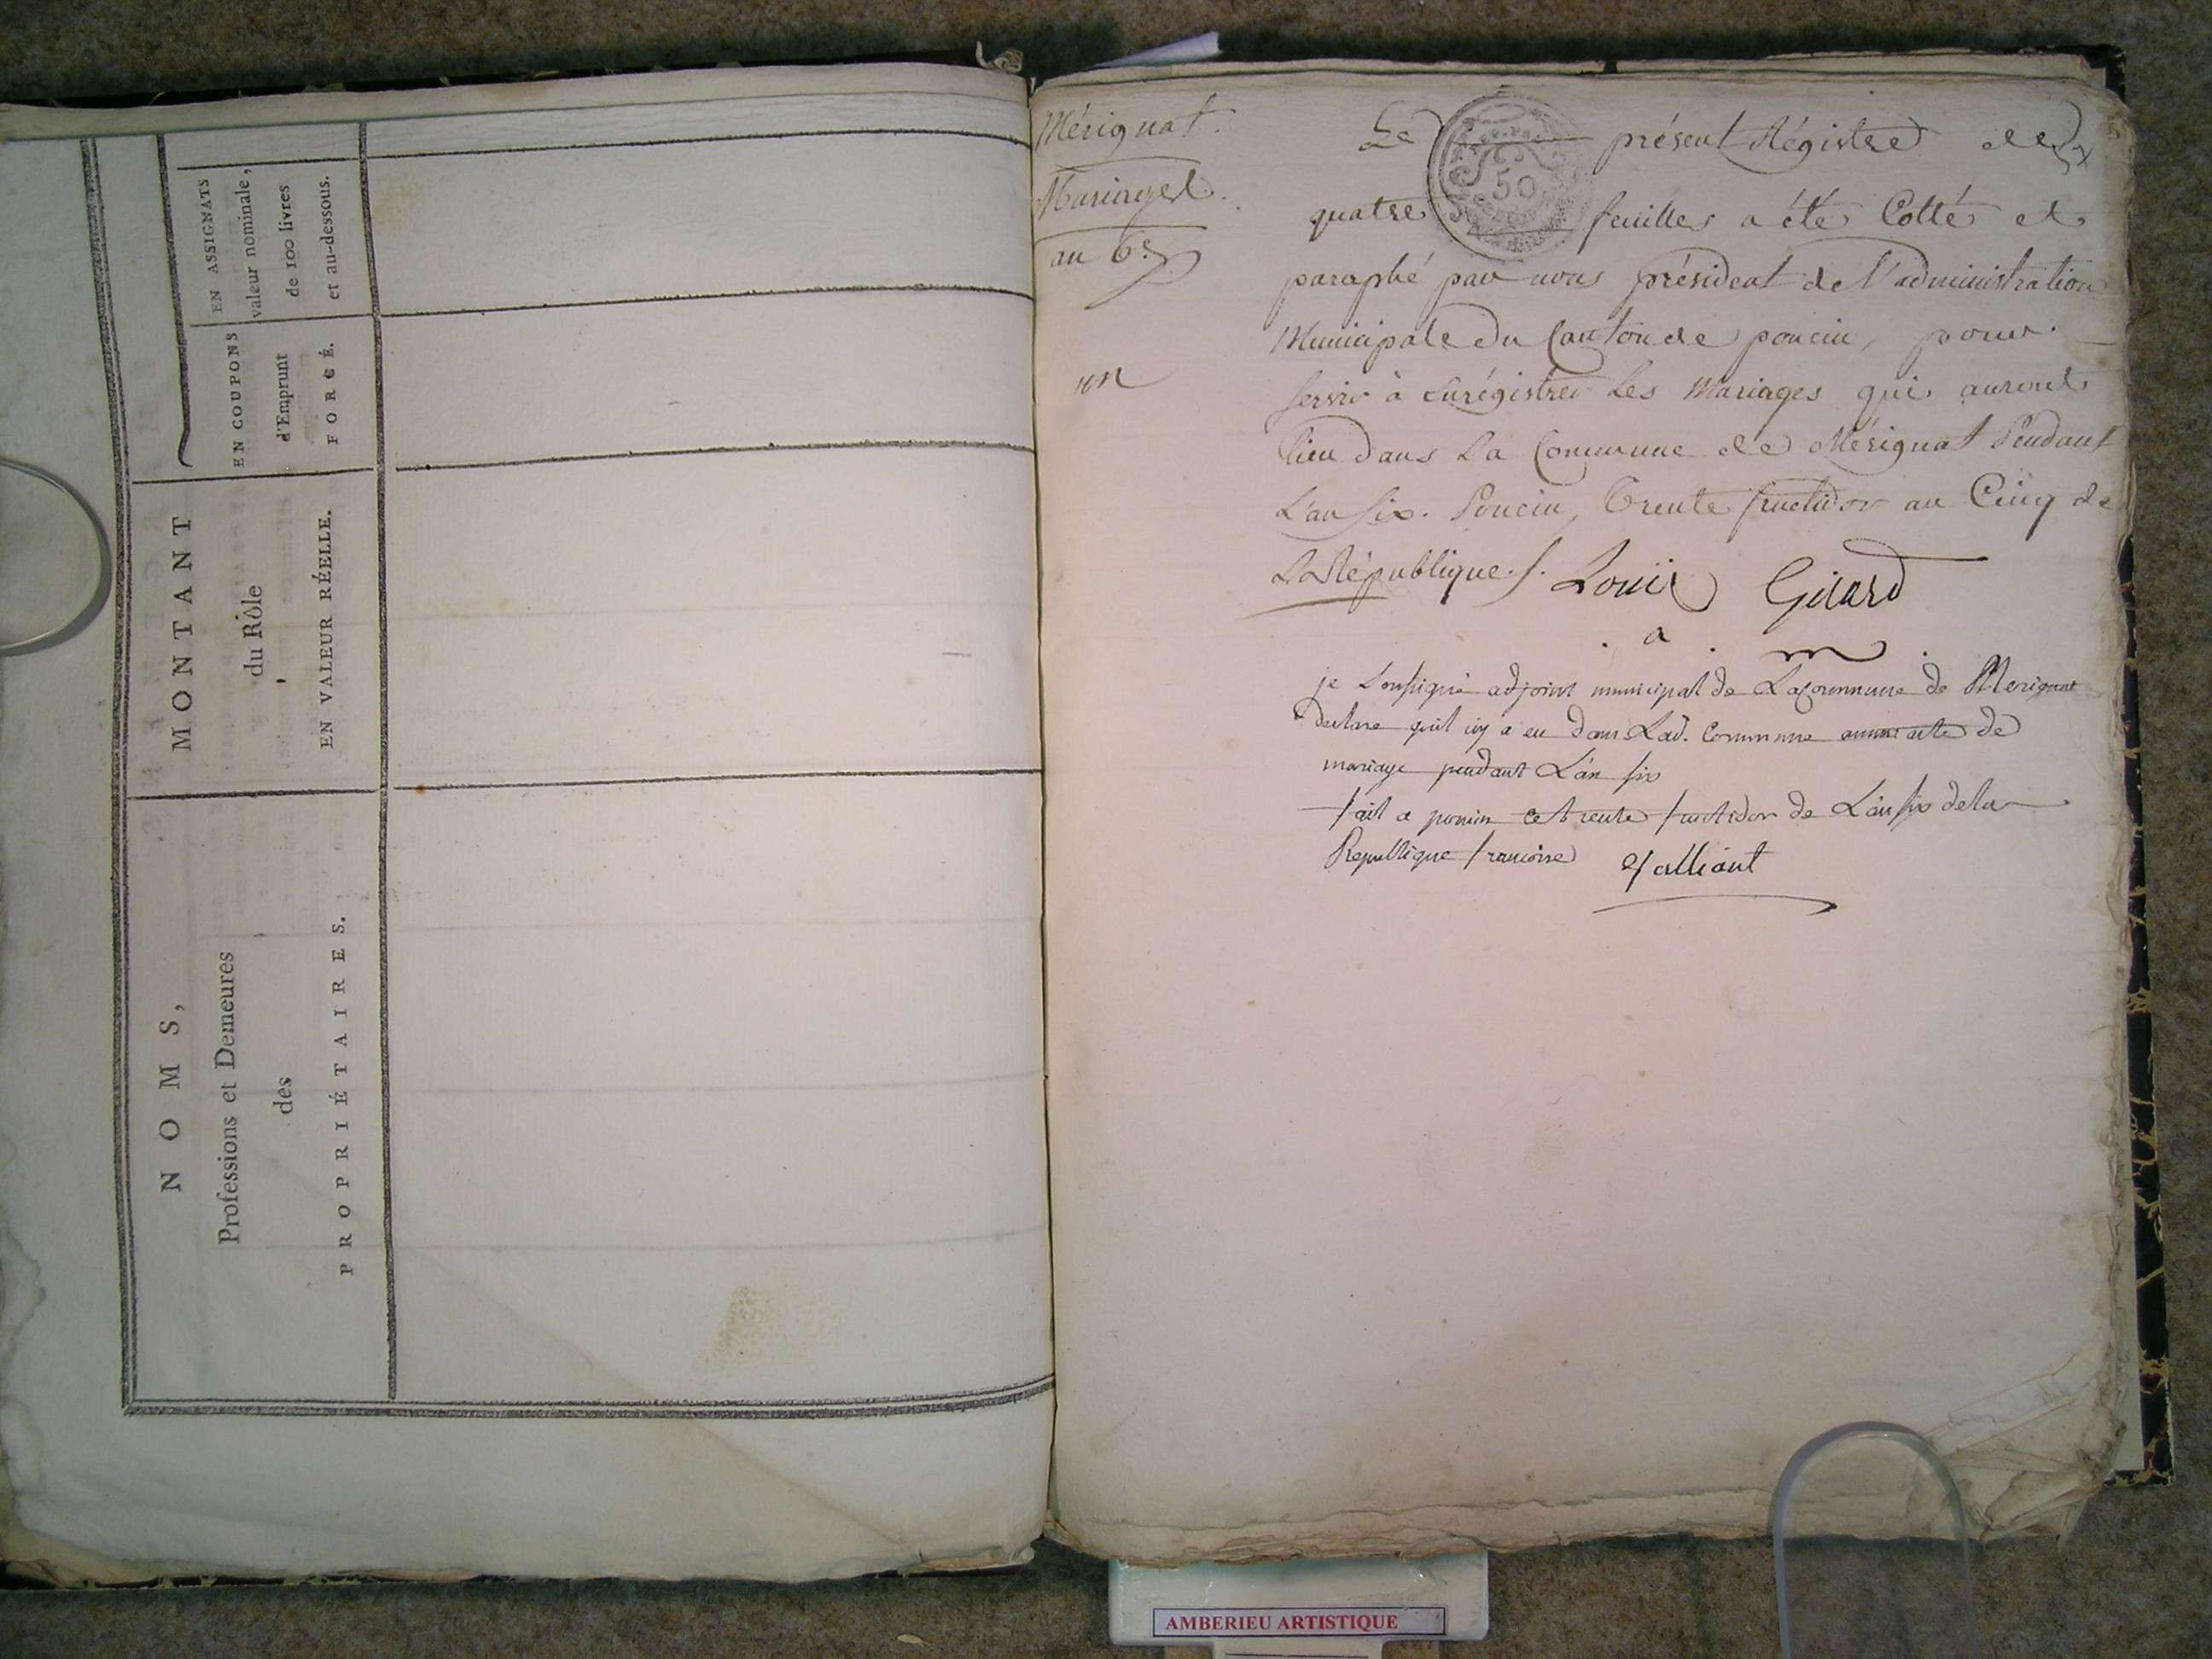 MONTANT
du Rôle
EN VALEUR RÉELLE.
EN COUPONS
d'Emprunt
FORCÉ.
EN ASSIGNATS
valeur nominale,
de 100 livres
et au-dessous.
NOMS,
Professions et Demeures
des
PROPRIÉTAIRES.
Mérignat.
Mariages.
an 6e
un
50
Le présent Régistre de
quatre feuilles a été Cotté et
paraphé par nous président de l'administration
Municipale du Canton de poncin, pour
servir à Enrégistrer Les Mariages qui auront
lieu dans La Commune de Mérignat Pendant
L'an six. Poncin, Trente fructidor an Cinq de
La République ./. Louis Girard
a m
je Soussigné adjoint municipal de La Commune de Merignat
declare quil ny a eu dans Lad. Commune aucun acte de
mariage pendant L'an six
fait a poncin ce trente fructidor de L'an six de la
Republique francoise
AMBERIEU ARTISTIQUE